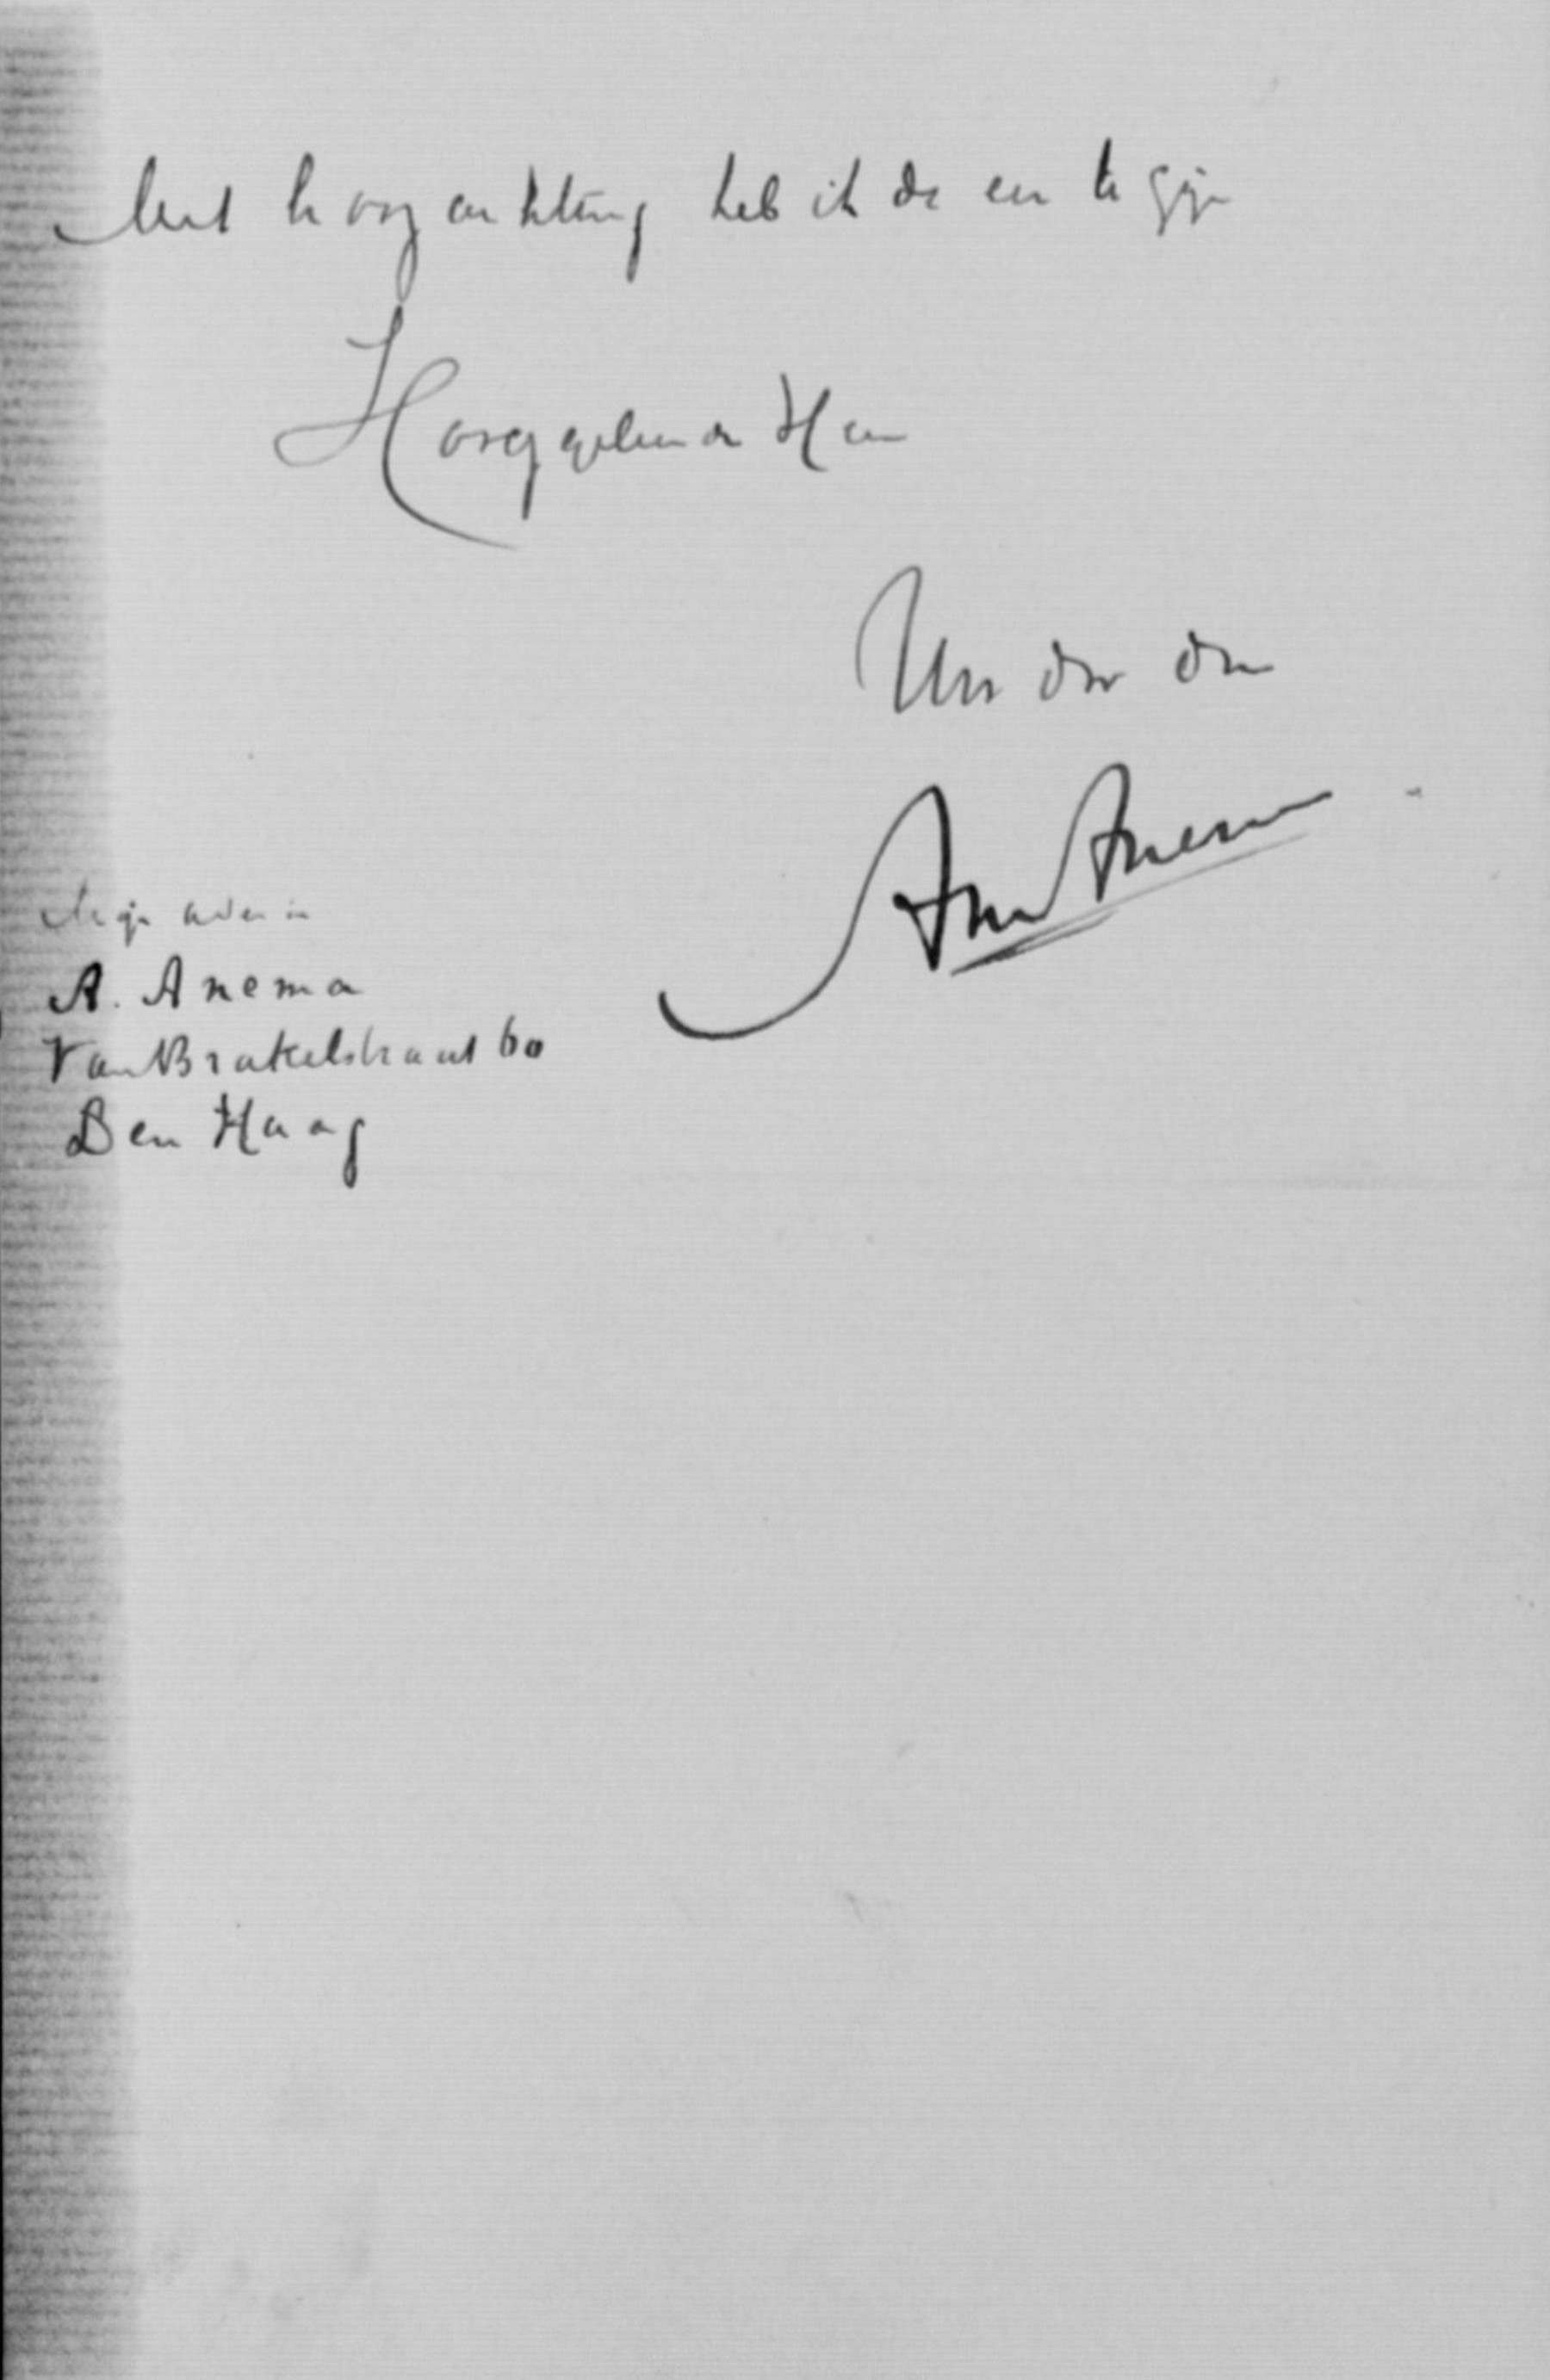 Met hoogachting heb ik de eer te zijn
Hooggeleerde Heer
Uw dw dn
Anne Anema
Mijn adres is
A. Anema
Van Brakelstraat 60
Den Haag